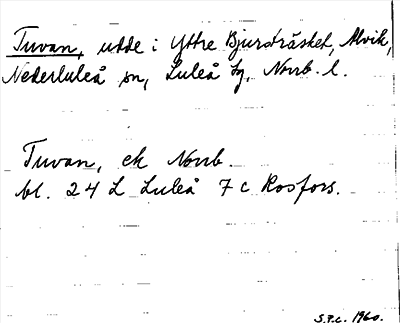 Tuvan, udde i Yttre Bjursträsket, Alvik,
Nederluleå sn, Luleå tg, Norrb. l.
Tuvan, ek Norrb.
bl. 24 L Luleå 7 c Rosfors.
S.P.C. 1960.